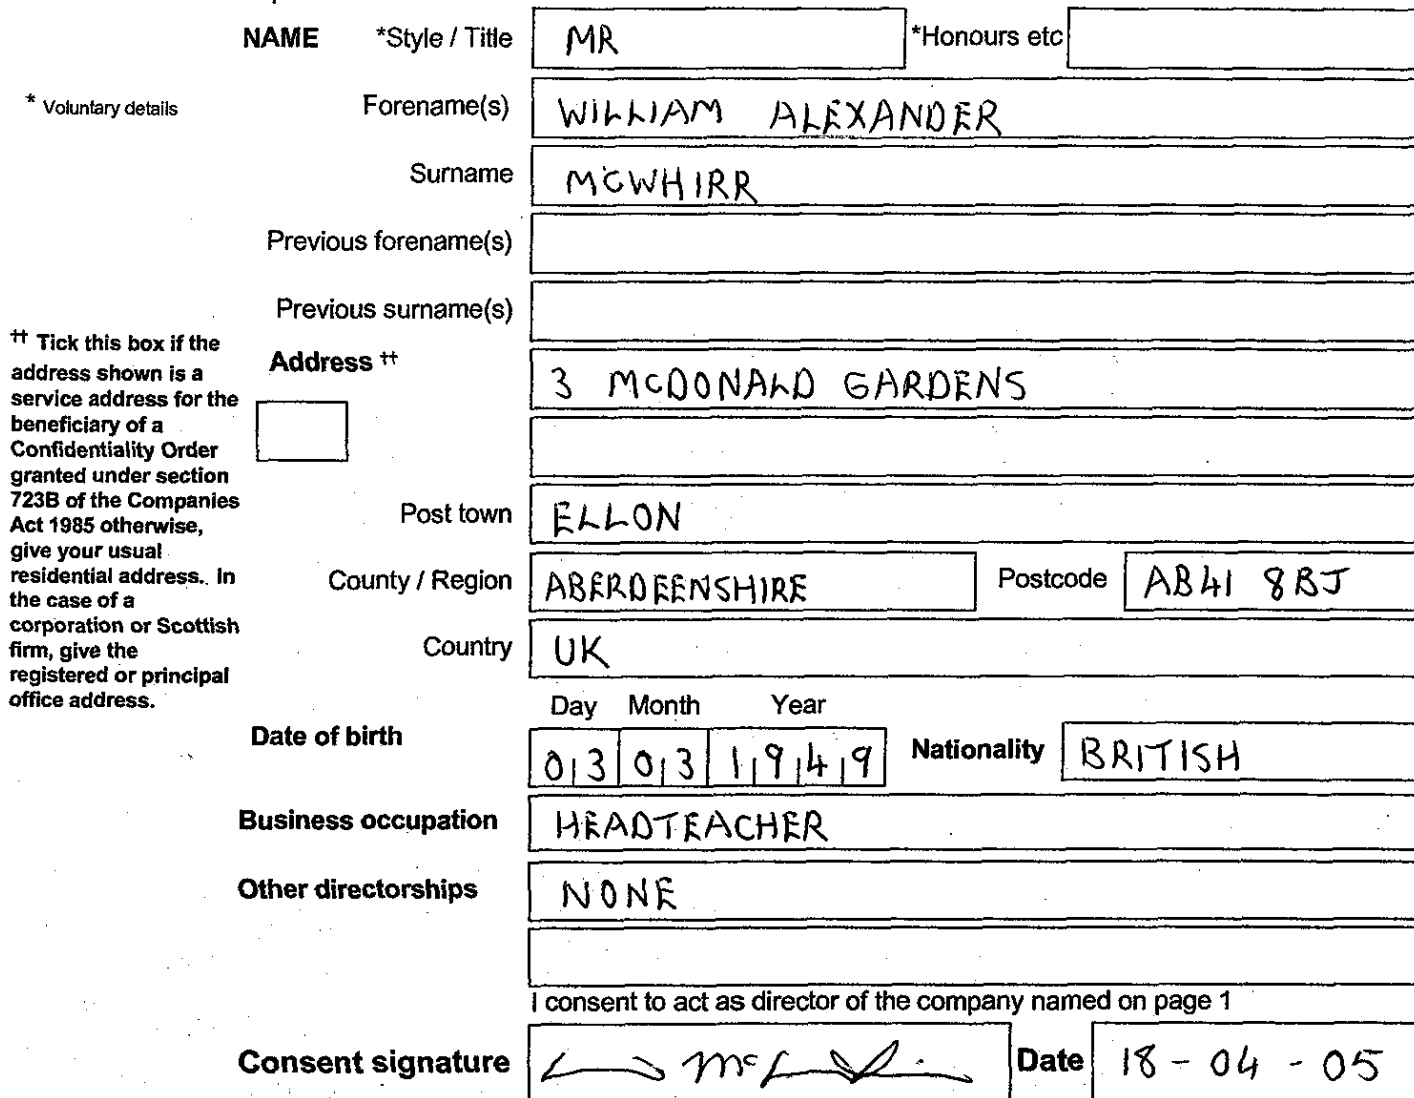 NAME *Style / Title MR *Honours etc
* Voluntary details Forename(s) WILLIAM ALEXANDER
Surname MCWHIRR
Previous forename(s)
Previous surname(s)
†† Tick this box if the
address shown is a
service address for the
beneficiary of a
Confidentiality Order
granted under section
723B of the Companies
Act 1985 otherwise,
give your usual
residential address. In
the case of a
corporation or Scottish
firm, give the
registered or principal
office address.
Address †† 3 MCDONALD GARDENS
Post town ELLON
County / Region ABERDEENSHIRE Postcode AB41 8BJ
Country UK
Day Month Year
Date of birth 03 03 1949 Nationality BRITISH
Business occupation HEADTEACHER
Other directorships NONE
I consent to act as director of the company named on page 1
Consent signature Date 18-04-05